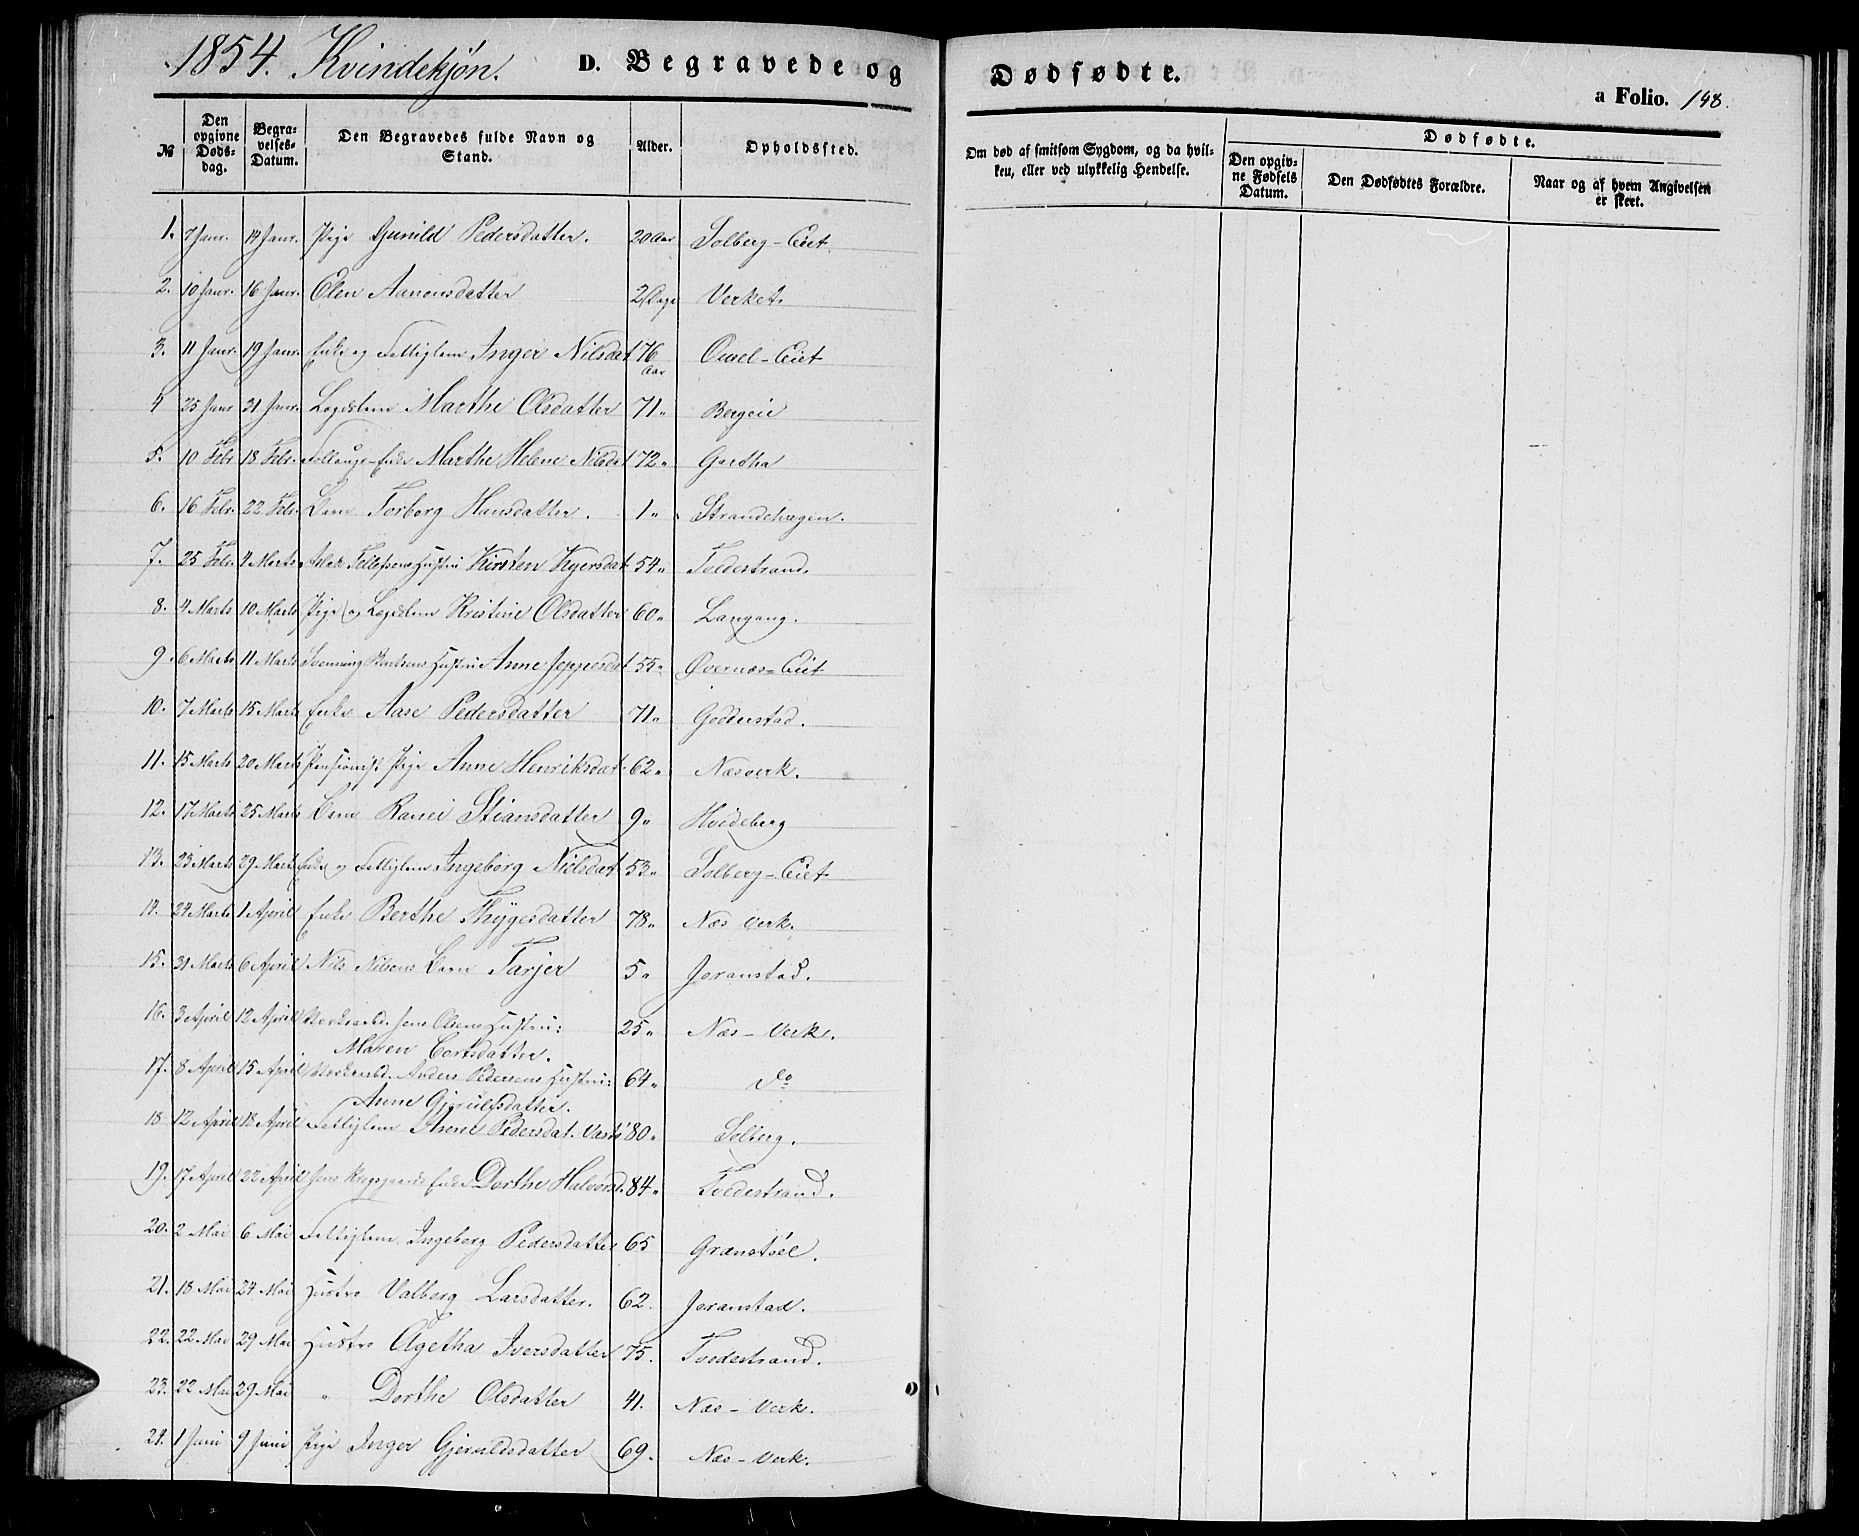 1854. Kvindekjön. D. Begravede og Dødfødte.
a Folio. 148.
№ Den opgivne Døds-dag. Begra-velses-Datum. Den Begravedes fulde Navn og Stand. Alder. Opholdssted.
Om død af smitsom Sygdom, og da hvil-ken, eller ved ulykkelig Hendelse. Dødfødte. Den opgiv-ne Fødsels Datum. Den Dødfødtes Forældre. Naar og af hvem Angivelsen er skeet.
1. 7 Janr. 14 Janr. Pige Gunild Pedersdatter. 20 Aar Solberg-Eiet
2. 10 Janr. 16 Janr. Elen Aanonsdatter 2 Dage Verket.
3. 11 Janr. 19 Janr. Enke og Fattiglem Inger Nilsdat 76 Aar -Eiet
4 25 Janr 31 Janr. Lægdslem Marthe Olsdatter 71" Bergeie
5. 10 Febr 18 Febr. Enke Marthe Helene Nilsdat 72" Gaastha
6. 16 Febr. 22 Febr. Barn Torborg Hansdatter. 1" Strandehagen.
7. 25 Febr. 4 Marts Aslak Tellefsens Hustru Kirsten 54" Tvedestrand.
8. 4 Marts 10 Marts Pige og Lægdslem Kristine Olsdatter 60" Langang.
9. 6 Marts 11 Marts Svenning Hustru Anne Jeppesdat 55" Øvernæs-Eiet
10. 7 Marts 15 Marts Enke Aase Pedersdatter 71" Goderstad.
11. 15 Marts 20 Marts Pensionist Pige Anne Henriksdat 62" Næsverk.
12. 17 Marts 25 Marts Barn Ranei Stiansdatter 9" Hvideberg
13. 23 Marts 29 Marts Enke og Fattiglem Ingeborg Nielsdat 53" Solberg-Eiet
14. 24 Marts 1 April Enke Berthe Thygesdatter 78" Næs Verk.
15. 31 Marts 6 April Nils Nilsens Barn Tarjer 5" Joranstad.
16. 3 April 12 April Jens Olsens Hustru: 25" Næs-Verk.
Maren Cortsdatter.
17. 8 April 15 April Anders Pedersens Hustru: 64" do
Anne Gjerulfsdatter.
18 12 April 18 April Fattiglem Anne Pedersdat. 80" Solberg.
19. 17 April 22 April Jens Enke Dorthe Halvorsd. 84" Tvedestrand.
20. 2 Mai 6 Mai Fattiglem Ingeborg Pedersdatter 65 Grænstøel.
21. 18 Mai 24 Mai Hustro Valborg Larsdatter. 62. Joranstad.
22. 22 Mai 29 Mai Hustro Agetha Iversdatter 75. Tvedestrand.
23. 22 Mai 29 Mai " Dorthe Olsdatter 41. Næs-Verk.
24. 1 Juni 9 Juni Pige Inger Gjeruldsdatter 69. Næs-Verk.